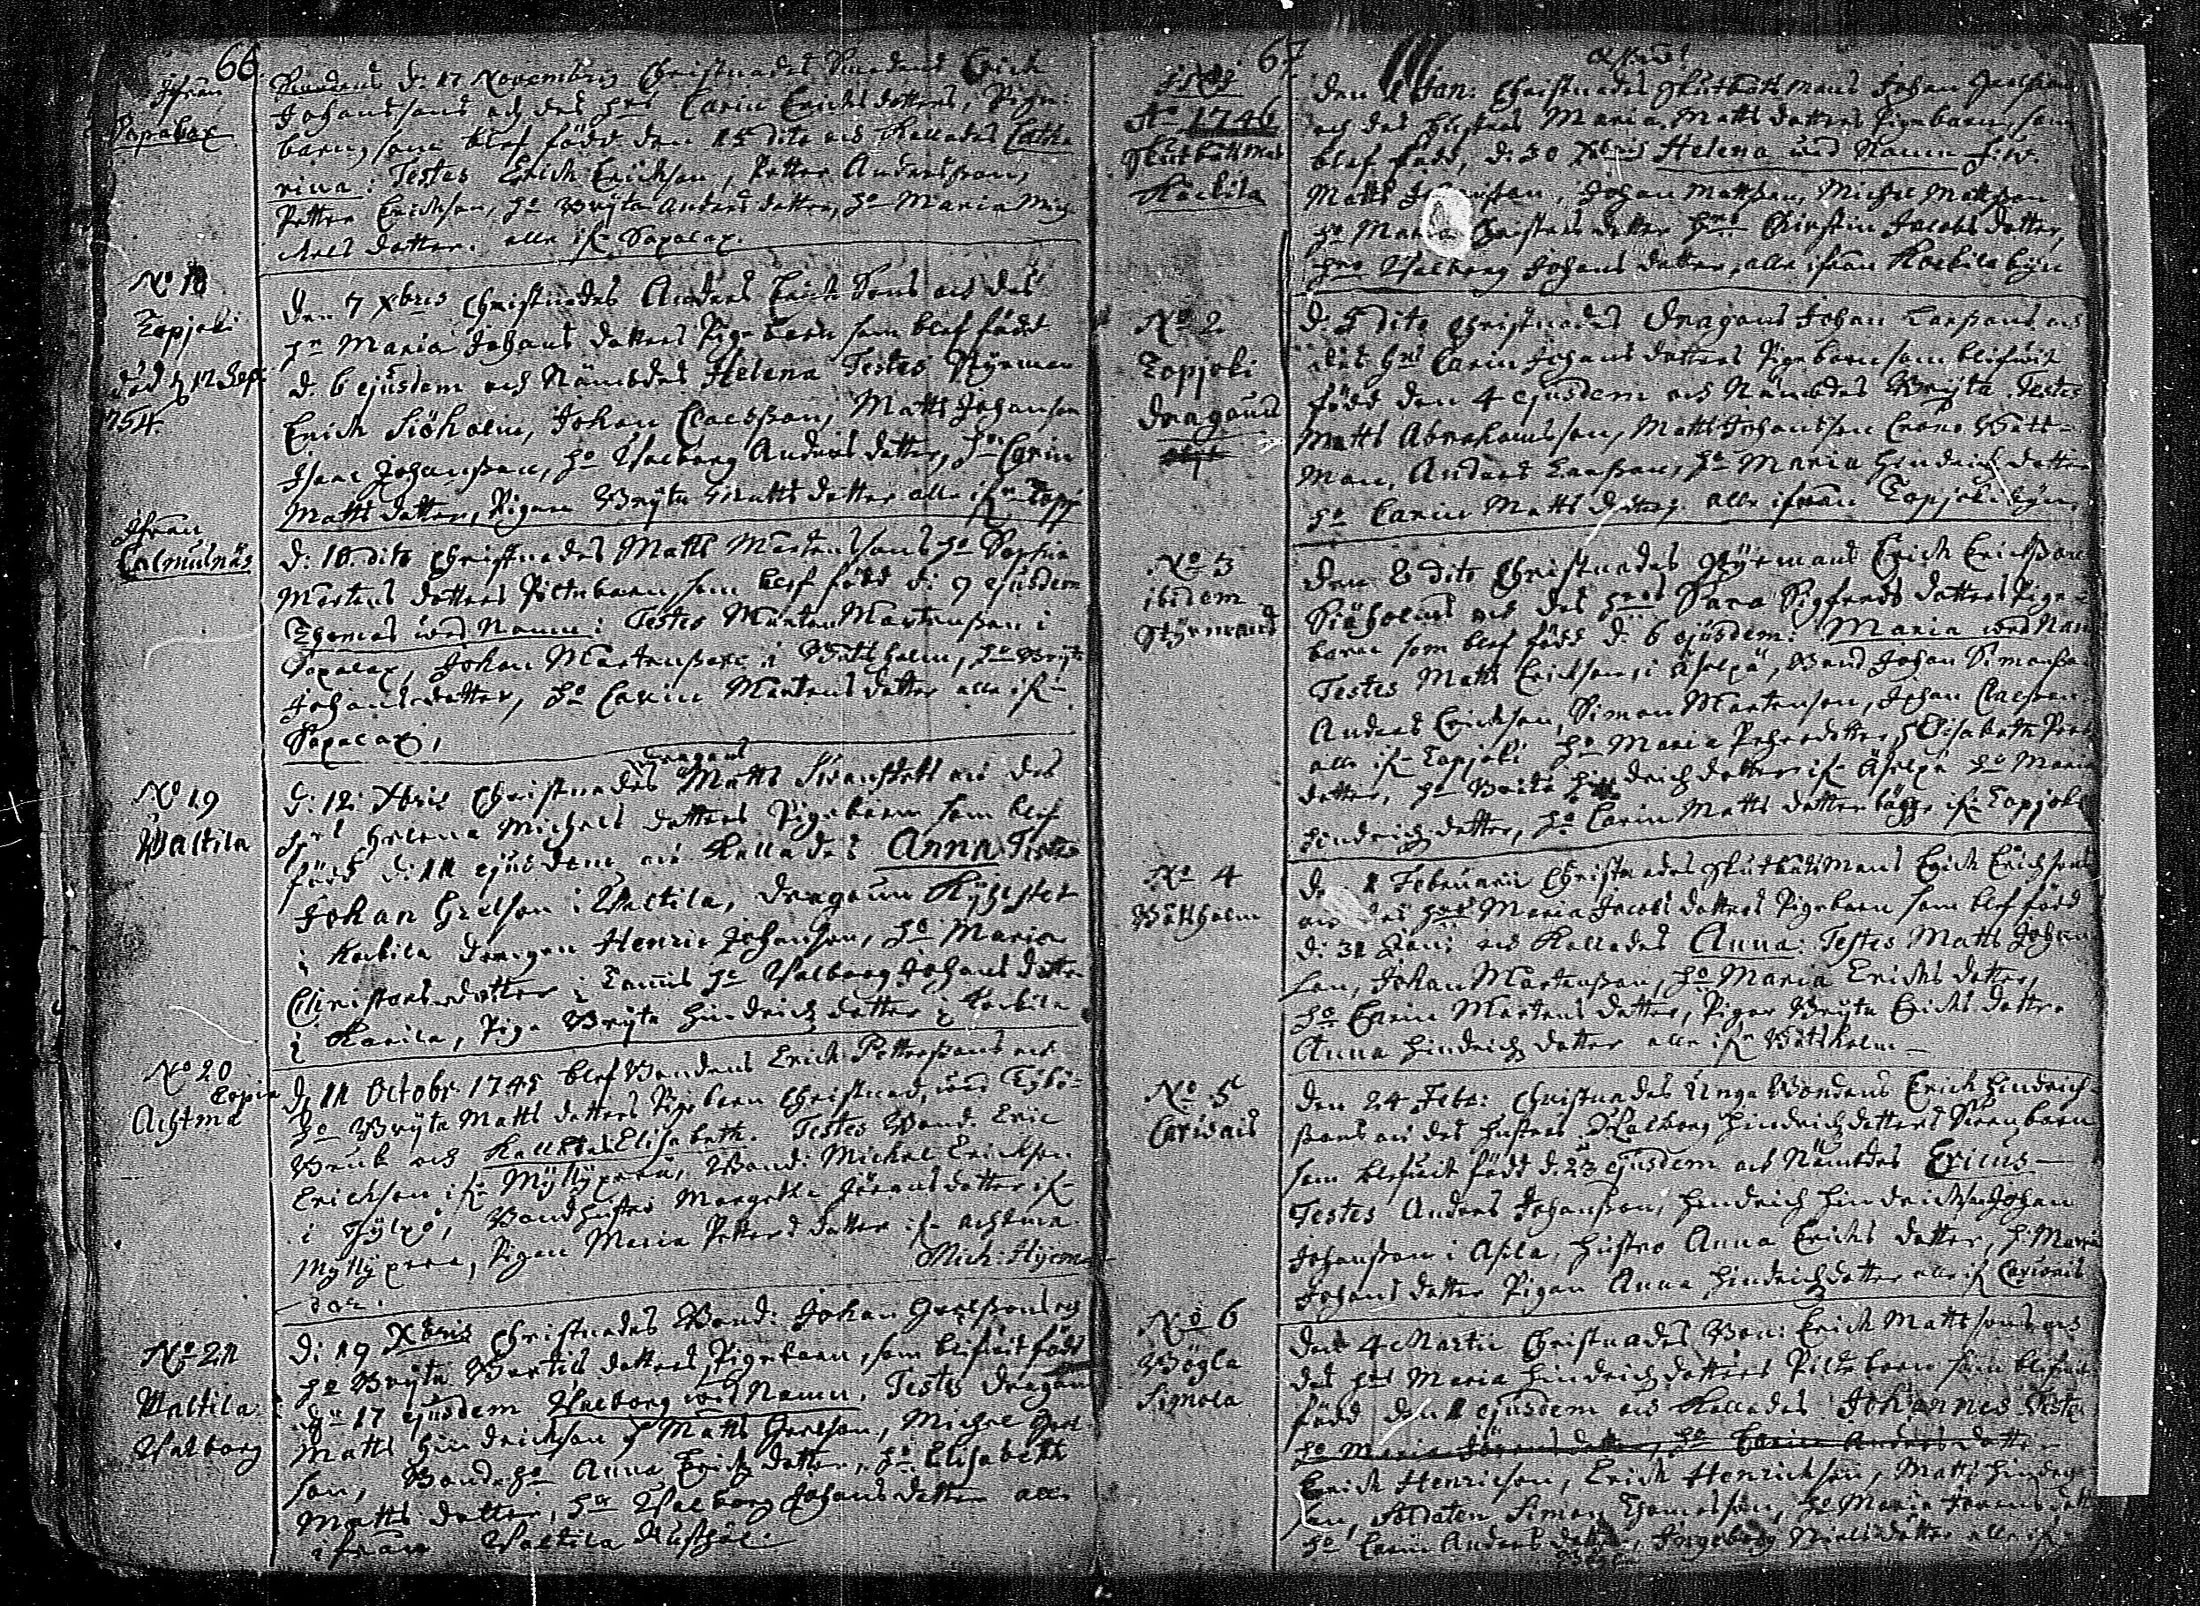 66
Ifrån
Sopalax
Bondens d: 17 Novembris Christnades Bondens Erich
Johanssons och des Hrs Carin Erichs dotters, Pige-
barn, som blef född den 15 dito och Kallades Catha
rina: Testes Erich Erichson, Petter Andersson,
Petter Erichson, Ho Bryta Anders dotter, Ho Maria Mich
chels dotter. alle ifr Sopalax.
No 18
Topjoki
död d 12 Sept
754.
Den 7 Xbris Christnades Anders Erich Sons och des
Ho Maria Johans dotters Pigebarn som blef född
d. 6 ejusdem och Nämbdes Helena Testes Styrman
Erich Siöholm, Johan Claesson, Matts Johanson
Isac Johansson, Ho Walborg Anders dotter, Ho Carin
Matts dotter, Pigan Bryta Matts dotter alle ifr Topj
Ifrån
Calmusnäs
d: 10. dito Christnades Matts Mårtenssons Ho Sophia
Mårtens dotters Piltebarn som blef född d: 9 ejusdem
Thomas wed Namn: Testes Mårten Mårtensson i
Sopalax, Johan Mårtensson i Båtsholm, Ho Bryta
Johans dotter, Ho Carin Mårtens dotter alle ifr
Sopalax,
No 19
Waltila
Dragouns
d: 12 Xbris Christnades Matts Swanstets och des
Hrs Helena Michels dotters Pigebarn som blef
född d: 11 ejusdem och Kallades Anna Testes
Johan Grelson i Waltila, Dragoun
i Korbila Drengen Henric Johanson, Ho Maria
Christers dotter i Tamis Ho Walborg Johans dotter
i Karila, Piga Bryta Hindrichs dotter i Korbila
No 20
Copia
Achtma
d 11 Octobr 1745 blef Bondens Erich Petterssons och
Ho Bryta Matts dotters Pigebarn Christnad, wed
Bruk och Kallades Elisabeth. Testes Bond. Eric
Erichson ifr Myllyperä, Bond: Michel Erichson
i Jylpö, Bondhustro Margetha Jörens dotter ifr
Myllyperä, Pigan Maria Petters dotter ifr Achtma
Mich: Hyema-
der.
No 21
Waltila
Walborg
D: 19 Xbris Christnades Bond: Johan Grelssons och
Ho Bryta Bertils dotters, Pigebarn, som blifwit född
den 17 ejusdem Walborg wed Namn. Testes Dragoun
Matts Hindrichson, Matts Grelson, Michel Grel
son, Bonde Ho Anna Erichs dotter, Ho Elisabeth
Matts dotter, Ho Walborg Johans dotter alle
ifrån Waltila Rusthål.
67
Ao 1746
Skutbåtsman
Korbila
den 1 Jan: Christnades Skutbåtsmans Johan
och des Hustros Maria Matts dotters Pigebarn, som
blef född, d: 30 Xbris Helena wed Namn f. w.
Matts, Johan Mattsson, Michel Mattsson
Ho Maria Christers dotter Hro Chirstin Jacobs dotter,
Hro Walborg Johans dotter, alle ifrån Korbila byn
No 2
Topjoki
Dragouns
D: 5 dito Christnades Dragouns Johan Larssons och
des Hrs Carin Johans dotters Pigebarn som blifwit
född den 4 ejusdem och Nämbdes Bryta. Testes
Matts Abrahamsson, Matts Johansson Crono Båts-
man, Anders Larsson, Ho Maria Hindrichs dotter
Ho Carin Matts dotter. alle ifrån Topjoki byn
No 3
ibidem
Styrmand
Den 8 dito Christnades Styrmans Erich Erichsson
Siöholms och des Hrs Sara Sigfreds dotters Pige-
barn som blef född d: 6 ejusdem: Maria wed Namn
Testes Matts Erichson i, Bond Johan Simonsson
Anders Erichson, Simon Mårtenson, Johan Claesson
alle ifr Topjoki Ho Maria Pehrs dotter, Elisabeth Pers
dotter, Ho Brita Hindrich dotter ifr Ho Maria
Hindrichs dotter, Ho Carin Matts dotter bägge ifr Topjoki
No 4
Båtsholm
Den 1 Februarii Christnades Skutbåtsmans Erich Erichsons
och des Hrs Maria Jacobs dotters Pigebarn som blef född
d: 31 Jan: och Kallades Anna: Testes Matts Johan
son, Johan Mårtensson, Ho Maria Erichs dotter,
Ho Carin Mårtens dotter, Pigor Bryta Erichs dotter
Anna Hindrichs dotter alle ifr Båtsholm
No 5
Carwais
Den 24 Febr: Christnades Unga Bondens Erich Hindrich
ssons och des Hustros Walborg Hindrichs dotters Swenbarn
som blifwit född d: 23 ejusdem och Nämbdes Ericus
Testes Anders Johansson, Hindrich Hindrichson Johan
Johansson i Asila, Hustro Anna Erichs dotter, H: Maria
Johans dotter Pigan Anna Hindrichs dotter alle ifr Carwais
No 6
Bögla
Simola
Den 4 Martii Christnades Bon: Erich Mattssons och
des Hrs Maria Hindrichs dotters Pilte barn som blifwit
född den 1 ejusdem och Kallades Johannes Testes
Ho Maria Jörens dotter, Ho Carin Anders dotter
Erich Henricson, Erich Henrichson, Matts Hindrich
son, Soldaten Simon Thomasson, Ho Maria Jörens dott
Ho Carin Anders dotter, Ingeborg Niels dotter alle ifr